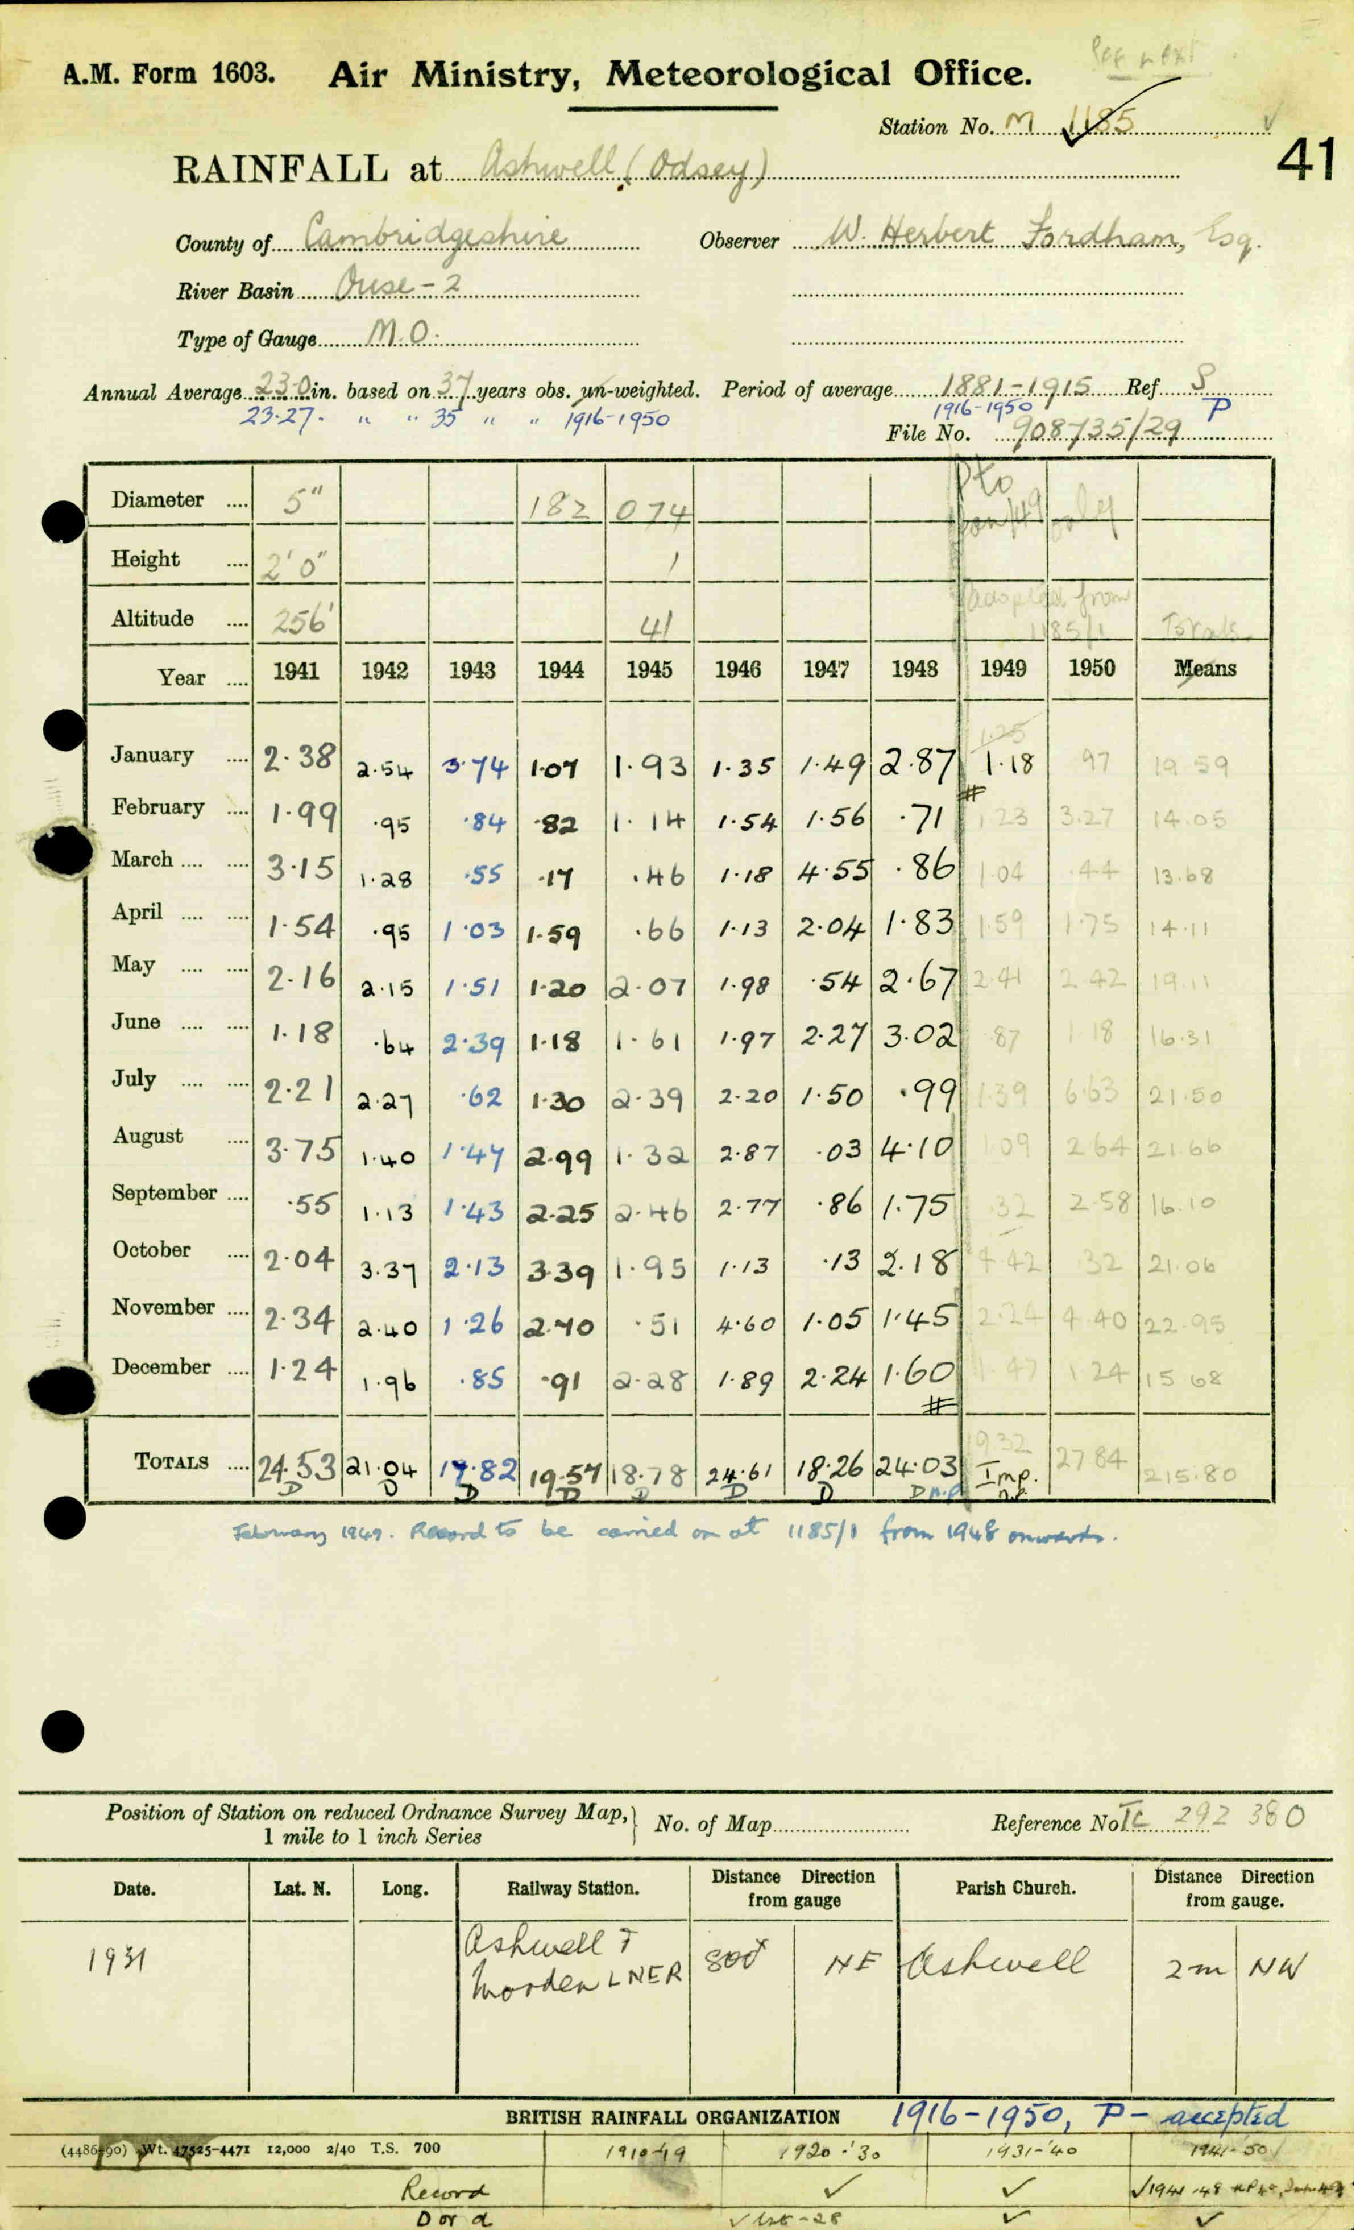 See next
A.M. Form 1603. Air Ministry, Meteorological Office.
Station No. M 1185
41
RAINFALL at Ashwell (Odsey)
County of Cambridgeshire Observer W. Herbert Fordham, Esq.
River Basin Ouse-2
Type of Gauge M.O.
Annual Average 23.0 in. based on 37 years obs. un-weighted. Period of average 1881-1915 Ref S
23.27. " " 35 " " 1916-1950 1916-1950 P
File No. 908735/29
Diameter .... 5" 182 074 Pto Jan/49 only
Height .... 2'0" 1
Altitude .... 256' 41 adopted from 1185/1 Totals
Year .... 1941 1942 1943 1944 1945 1946 1947 1948 1949 1950 Means
1.25
January .... 2.38 2.54 3.74 1.07 1.93 1.35 1.49 2.87 1.18 97 19 59
February .... 1.99 .95 .84 .82 1.14 1.54 1.56 .71 1.23 3.27 14.05
March .... .... 3.15 1.28 .55 .17 .46 1.18 4.55 .86 1.04 .44 13.68
April .... .... 1.54 .95 1.03 1.59 .66 1.13 2.04 1.83 1.59 1.75 14.11
May .... .... 2.16 2.15 1.51 1.20 2.07 1.98 .54 2.67 2.41 2.42 19.11
June .... .... 1.18 .64 2.39 1.18 1.61 1.97 2.27 3.02 .87 1.18 16.31
July .... .... 2.21 2.27 .62 1.30 2.39 2.20 1.50 .99 1.39 6.63 21.50
August .... 3.75 1.40 1.47 2.99 1.32 2.87 .03 4.10 1.09 2.64 21.66
September .... .55 1.13 1.43 2.25 2.46 2.77 .86 1.75 .32 2.58 16.10
October .... 2.04 3.37 2.13 3.39 1.95 1.13 .13 2.18 4.42 .32 21.06
November .... 2.34 2.40 1.26 2.70 .51 4.60 1.05 1.45 2.24 4.40 22.95
December .... 1.24 1.96 .85 .91 2.28 1.89 2.24 1.60 1.47 1.24 15 68
19.32
TOTALS .... 24.53 21.04 17.82 19.57 18.78 24.61 18.26 24.03 Imp. 27 84 215.80
D D D D D D D D n.p. n.p.
February 1949. Record to be carried on at 1185/1 from 1948 onwards.
Position of Station on reduced Ordnance Survey Map, 1 mile to 1 inch Series No. of Map Reference No TL 292 380
Date. Lat. N. Long. Railway Station. Distance Direction from gauge Parish Church. Distance Direction from gauge.
1931 Ashwell & Morden LNER 800x NE Ashwell 2m NW
BRITISH RAINFALL ORGANIZATION 1916-1950, P- accepted
(4486-90) Wt. 47525-4471 12,000 2/40 T.S. 700 1910-19 1920-'30 1931-'40 1941-'50
Record ✓ ✓ ✓1941-48
D or d ✓ ✓ ✓